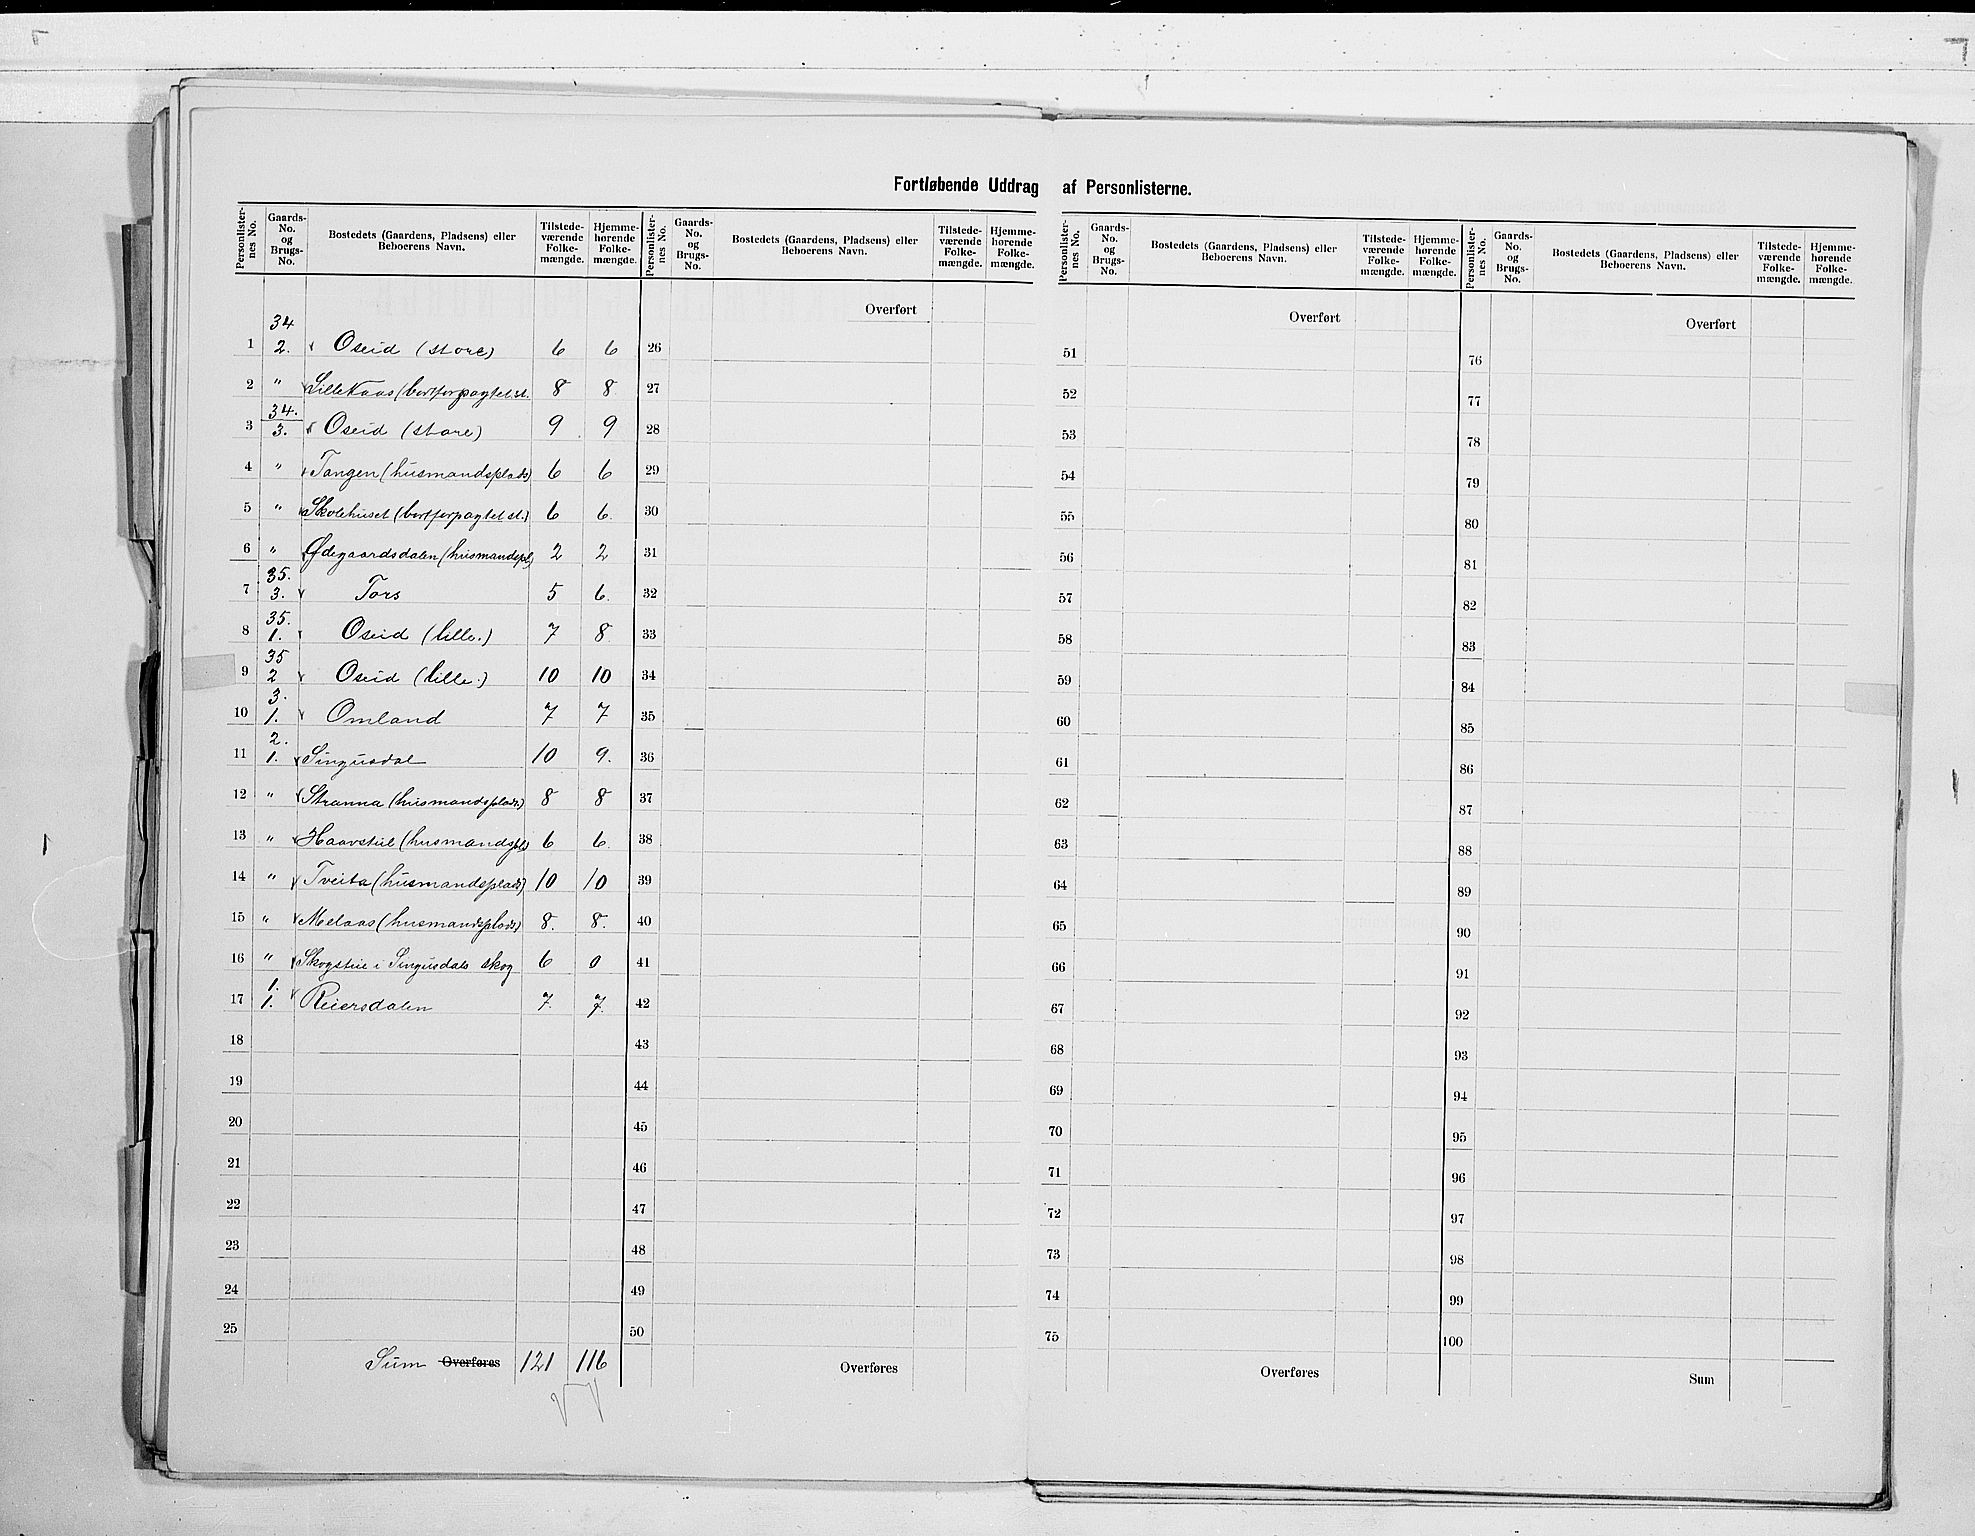 Fortløbende Uddrag af Personlisterne.
Personlister-nes No. Gaards-No. og Brugs-No. Bostedets (Gaardens, Pladsens) eller Beboerens Navn. Tilstede-værende Folke-mængde. Hjemme-hørende Folke-mængde.
34
1 2. Oseid (store) 6 6
2 " Lille Naas (bortforpagtet st. 8 8
34.
3 3. Oseid (store) 9 9
4 " Tangen (husmandsplads) 6 6
5 " Skolehuset (bortforpagtet st.) 6 6.
6 " Ødegaardsdalen (husmandspl.) 2 2
35.
7 3. Tors 5 6.
35.
8 1. Oseid (lille.) 7 8
35
9 2 Oseid (lille.) 10 10
3.
10 1. Omland 7 7
2.
11 1. Singusdal 10 9.
12 " Stranna (husmandsplads) 8 8
13 " Haavstul (husmandspls) 6 6.
14 " Tveita (husmandsplads) 10 10
15 " Melaas (husmandsplads) 8. 8.
16 " Skogstue i Singusdals skog 6 0
1.
17 1. Reiersdalen 7. 7.
18
19
20
21
22
23
24
25
Sum Overføres 121 116
Personlister-nes No. Gaards-No. og Brugs-No. Bostedets (Gaardens, Pladsens) eller Beboerens Navn. Tilstede-værende Folke-mængde. Hjemme-hørende Folke-mængde.
Overført
26
27
28
29
30
31
32
33
34
35
36
37
38
39
40
41
42
43
44
45
46
47
48
49
50
Overføres
Personlister-nes No. Gaards-No. og Brugs-No. Bostedets (Gaardens, Pladsens) eller Beboerens Navn. Tilstede-værende Folke-mængde. Hjemme-hørende Folke-mængde.
Overført
51
52
53
54
55
56
57
58
59
60
61
62
63
64
65
66
67
68
69
70
71
72
73
74
75
Overføres
Personlister-nes No. Gaards-No. og Brugs-No. Bostedets (Gaardens, Pladsens) eller Beboerens Navn. Tilstede-værende Folke-mængde. Hjemme-hørende Folke-mængde.
Overført
76
77
78
79
80
81
82
83
84
85
86
87
88
89
90
91
92
93
94
95
96
97
98
99
100
Sum